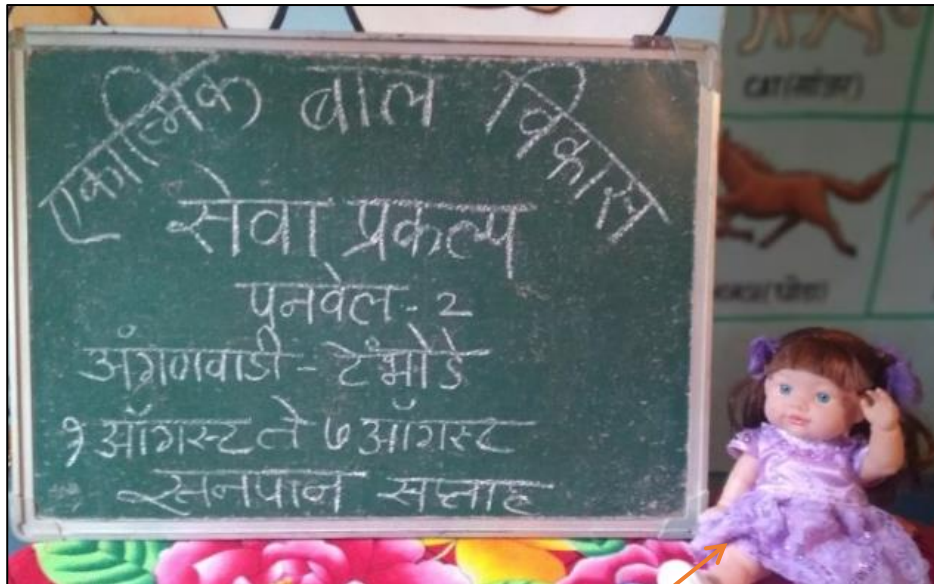 एकात्मिक बाल विकास
सेवा प्रकल्प
पनवेल - 2
अंगणवाडी - टेंभोडे
१ ऑगस्ट ते ७ ऑगस्ट
स्तनपान सप्ताह
CAT (मांजर)
(घोडा)